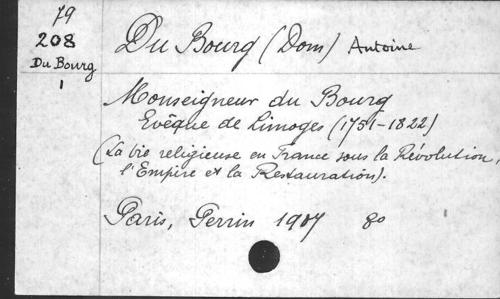 79
208
Du Bourg
1
Du Bourg (Dom) Antoine
Monseigneur du Bourg
Evêque de Limoges (1751-1822)
(La vie religieuse en France sous la Révolution,
l'Empire et la Restauration).
Paris, Perrin 1907 8o